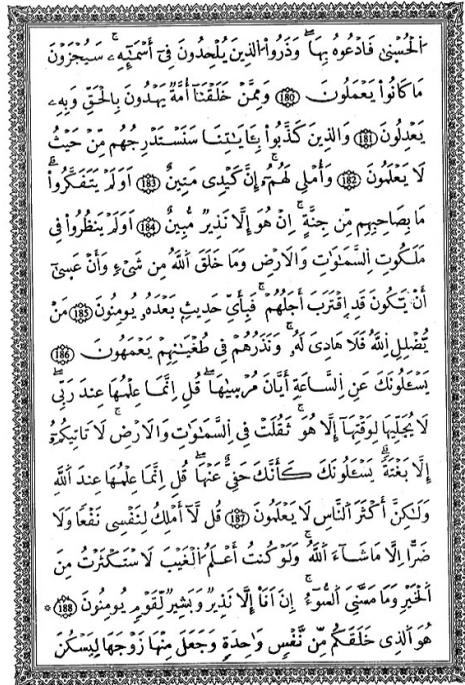 اَ۬لْحُسْن۪يٰ فَادْعُوهُ بِهَاۖ وَذَرُواْ اُ۬لذِينَ يُلْحِدُونَ فِےٓ أَسْمَٰٓئِهِۦۖ سَيُجْزَوْنَ
مَا كَانُواْ يَعْمَلُونَ 180 وَمِمَّنْ خَلَقْنَآ أُمَّةٞ يَهْدُونَ بِالْحَقِّ وَبِهِۦ
يَعْدِلُونَ 181 وَالذِينَ كَذَّبُواْ بِـَٔايَٰتِنَا سَنَسْتَدْرِجُهُم مِّنْ حَيْثُ
لَا يَعْلَمُونَ 182 وَأُمْلِے لَهُمُۥٓۖ إِنَّ كَيْدِے مَتِينٌ 183 اَوَلَمْ يَتَفَكَّرُواْۖ
مَا بِصَاحِبِهِم مِّن جِنَّةٍۖ اِنْ هُوَ إِلَّا نَذِيرٞ مُّبِينٌ 184 اَوَلَمْ يَنظُرُواْ فِے
مَلَكُوتِ اِ۬لسَّمَٰوَٰتِ وَالَارْضِ وَمَا خَلَقَ اَ۬للَّهُ مِن شَےْءٖ وَأَنْ عَس۪يٰٓ
أَنْ يَّكُونَ قَدِ اِ۪قْتَرَبَ أَجَلُهُمْۖ فَبِأَيِّ حَدِيثِۢ بَعْدَهُۥ يُومِنُونَۖ 185 مَنْ
يُّضْلِلِ اِ۬للَّهُ فَلَا هَادِيَ لَهُۥۖ وَنَذَرُهُمْ فِے طُغْيَٰنِهِمْ يَعْمَهُونَۖ 186
يَسْـَٔلُونَكَ عَنِ اِ۬لسَّاعَةِ أَيَّانَ مُرْس۪يٰهَاۖ قُلِ اِنَّمَا عِلْمُهَا عِندَ رَبِّےۖ
لَا يُجَلِّيهَا لِوَقْتِهَآ إِلَّا هُوَۖ ثَقُلَتْ فِے اِ۬لسَّمَٰوَٰتِ وَالَارْضِۖ لَا تَاتِيكُمُۥٓ
إِلَّا بَغْتَةٗۖ يَسْـَٔلُونَكَ كَأَنَّكَ حَفِيٌّ عَنْهَاۖ قُلِ اِنَّمَا عِلْمُهَا عِندَ اَ۬للَّهِ
وَلَٰكِنَّ أَكْثَرَ اَ۬لنَّاسِ لَا يَعْلَمُونَۖ 187 قُل لَّآ أَمْلِكُ لِنَفْسِے نَفْعاٗ وَلَا
ضَرّاً اِلَّا مَا شَآءَ اَ۬للَّهُۖ وَلَوْ كُنتُ أَعْلَمُ اُ۬لْغَيْبَ لَاسْتَكْثَرْتُ مِنَ
اَ۬لْخَيْرِ وَمَا مَسَّنِيَ اَ۬لسُّوٓءُۖ اِنَ اَنَآ إِلَّا نَذِيرٞ وَبَشِيرٞ لِّقَوْمٖ يُومِنُونَۖ 188
هُوَ اَ۬لذِے خَلَقَكُم مِّن نَّفْسٖ وَٰحِدَةٖ وَجَعَلَ مِنْهَا زَوْجَهَا لِيَسْكُنَ